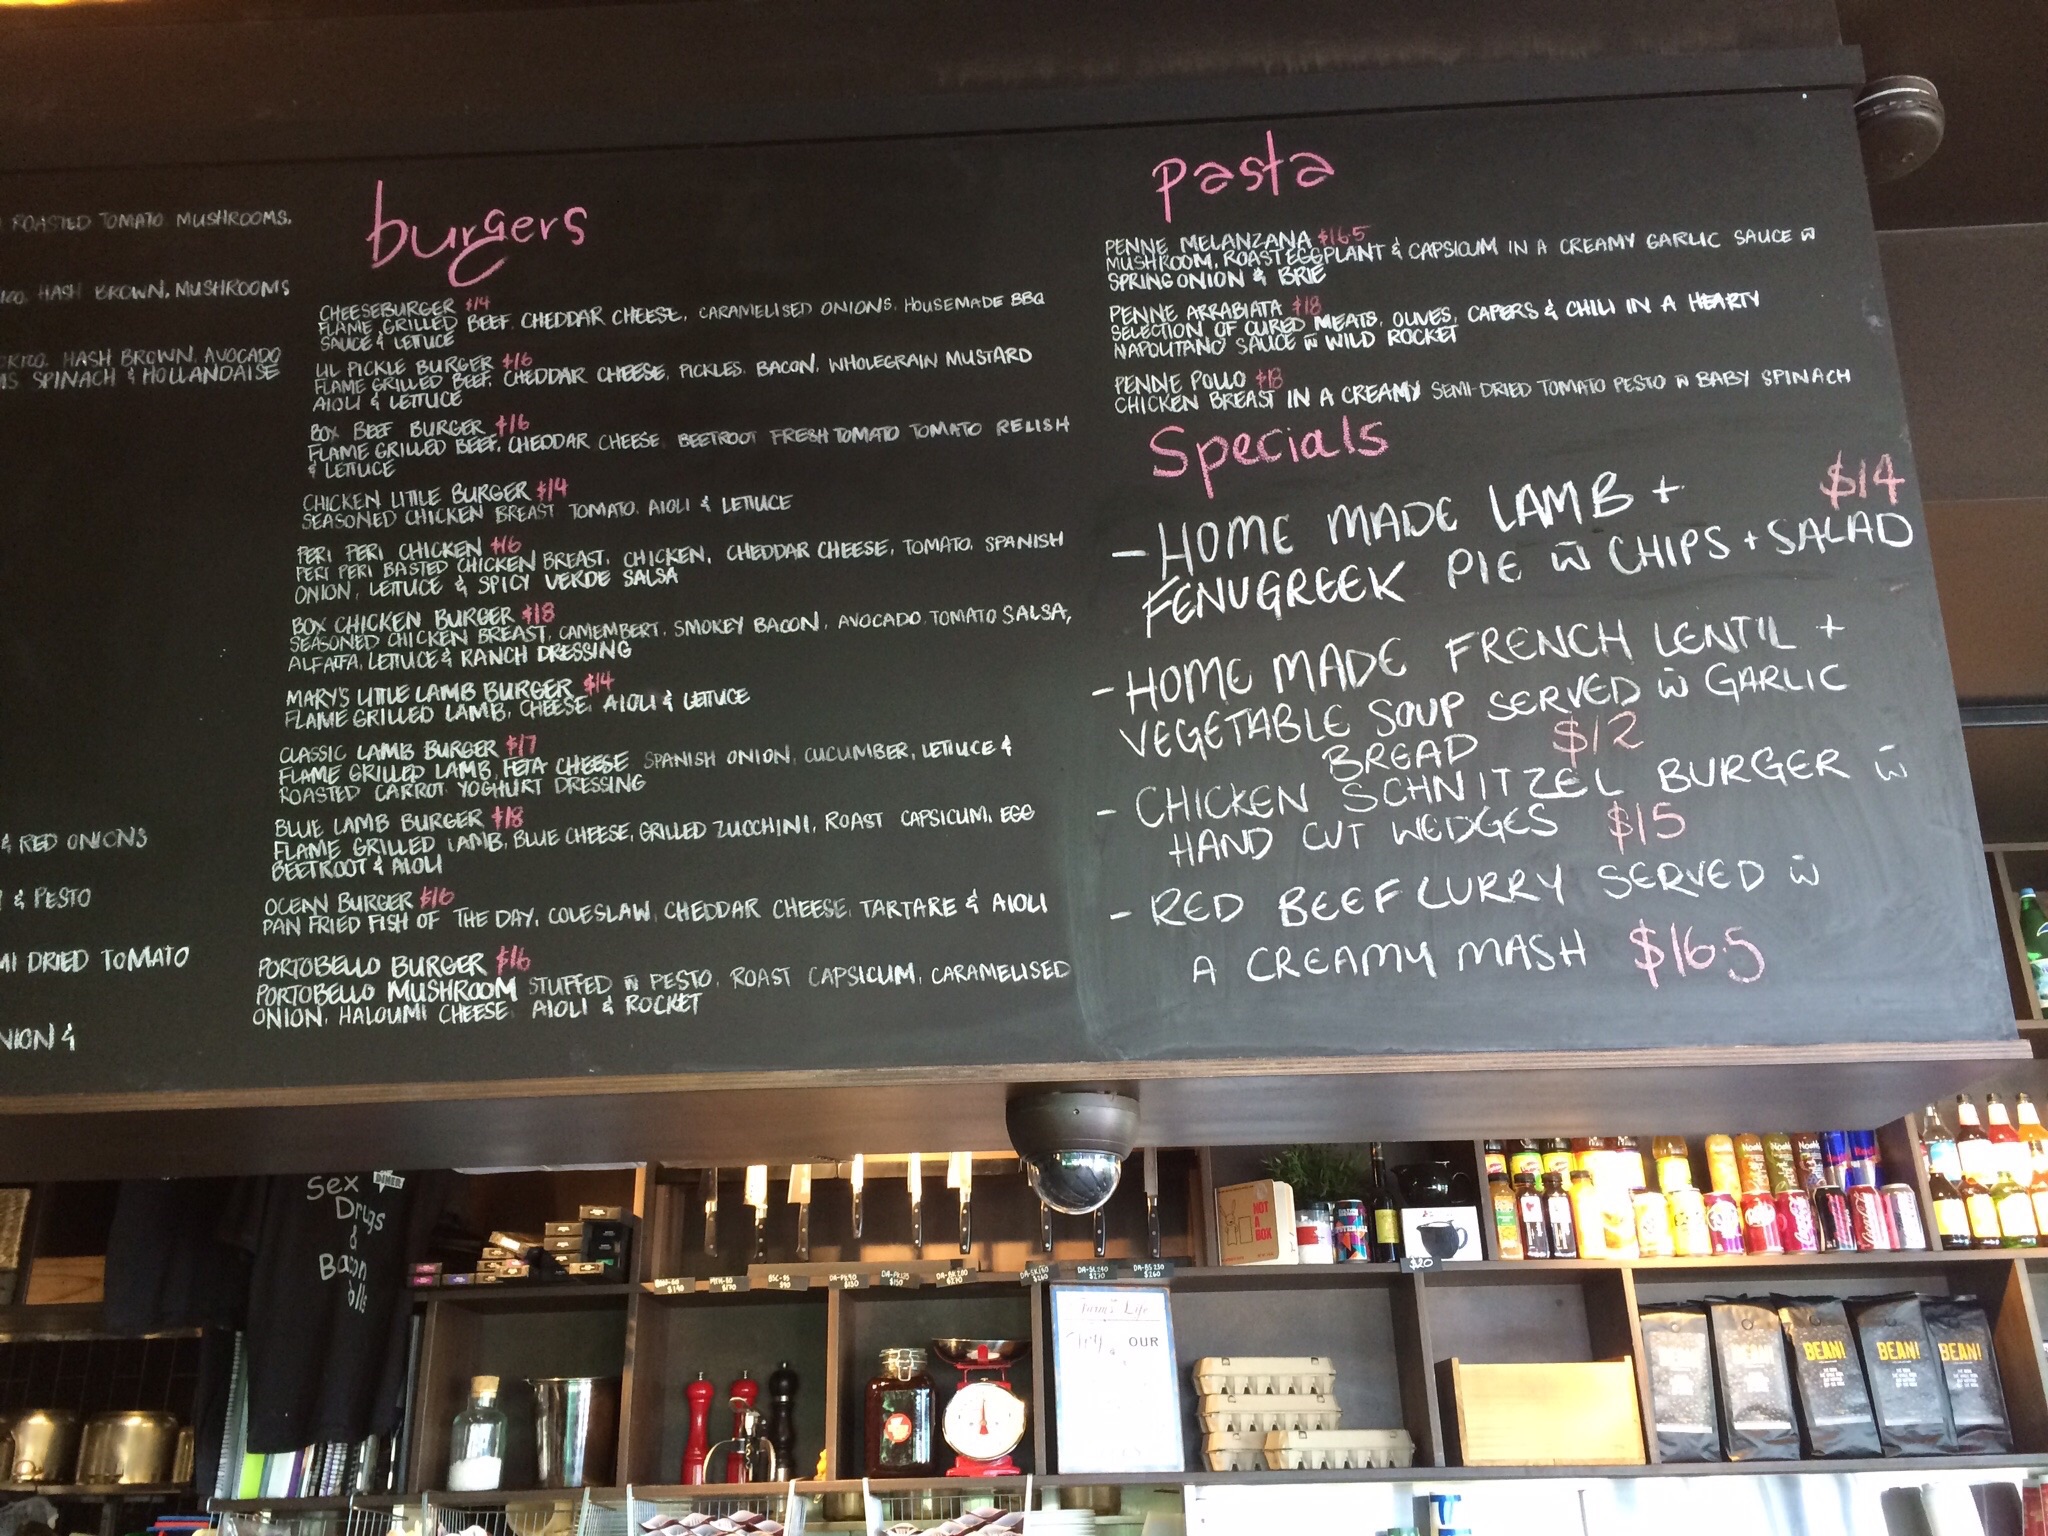 ROASTED TOMATO MUSHROOMS,
HASH BROWN, MUSHROOMS
HASH BROWN, AVOCADO
SPINACH & HOLLANDAISE
& RED ONIONS
& PESTO
DRIED TOMATO
&
burgers
CHEESEBURGER $14
FLAME GRILLED BEEF, CHEDDAR CHEESE, CARAMELISED ONIONS, HOUSEMADE BBQ
SAUCE & LETTUCE
LIL PICKLE BURGER $16
FLAME GRILLED BEEF, CHEDDAR CHEESE, PICKLES, BACON, WHOLEGRAIN MUSTARD
AIOLI & LETTUCE
BOX BEEF BURGER $16
FLAME GRILLED BEEF, CHEDDAR CHEESE BEETROOT FRESH TOMATO TOMATO RELISH
& LETTUCE
CHICKEN LITTLE BURGER $14
SEASONED CHICKEN BREAST TOMATO, AIOLI & LETTUCE
PERI PERI CHICKEN $16
PERI PERI BASTED CHICKEN BREAST, CHICKEN, CHEDDAR CHEESE, TOMATO, SPANISH
ONION, LETTUCE & SPICY VERDE SALSA
BOX CHICKEN BURGER $18
SEASONED CHICKEN BREAST, CAMEMBERT, SMOKEY BACON, AVOCADO, TOMATO SALSA,
ALFALFA, LETTUCE & RANCH DRESSING
MARY'S LITTLE LAMB BURGER $14
FLAME GRILLED LAMB, CHEESE, AIOLI & LETTUCE
CLASSIC LAMB BURGER $17
FLAME GRILLED LAMB, FETA CHEESE SPANISH ONION, CUCUMBER, LETTUCE &
ROASTED CARROT YOGHURT DRESSING
BLUE LAMB BURGER $18
FLAME GRILLED LAMB, BLUE CHEESE, GRILLED ZUCCHINI, ROAST CAPSICUM, EGG
BEETROOT & AIOLI
OCEAN BURGER $16
PAN FRIED FISH OF THE DAY, COLESLAW, CHEDDAR CHEESE, TARTARE & AIOLI
PORTOBELLO BURGER $16
PORTOBELLO MUSHROOM STUFFED w̄ PESTO, ROAST CAPSICUM, CARAMELISED
ONION, HALOUMI CHEESE, AIOLI & ROCKET
pasta
PENNE MELANZANA $16.5
MUSHROOM, ROAST EGGPLANT & CAPSICUM IN A CREAMY GARLIC SAUCE w̄
SPRING ONION & BRIE
PENNE ARRABIATA $18
SELECTION OF CURED MEATS, OLIVES, CAPERS & CHILI IN A HEARTY
NAPOLITANO SAUCE w̄ WILD ROCKET
PENNE POLLO $18
CHICKEN BREAST IN A CREAMY SEMI-DRIED TOMATO PESTO w̄ BABY SPINACH
Specials
- HOME MADE LAMB + $14
FENUGREEK PIE w̄ CHIPS + SALAD
- HOME MADE FRENCH LENTIL +
VEGETABLE SOUP SERVED w̄ GARLIC
BREAD $12
- CHICKEN SCHNITZEL BURGER w̄
HAND CUT WEDGES $15
- RED BEEF CURRY SERVED w̄
A CREAMY MASH $16.5
Sex
Drugs
&
Bacon
DINER
$140
$170
$90
$130
$150
DA-SL240
$270
DA-BS230
$260
NOT
A
BOX
$20
Farm Life
OUR
BEAN!
BEAN!
BEAN!